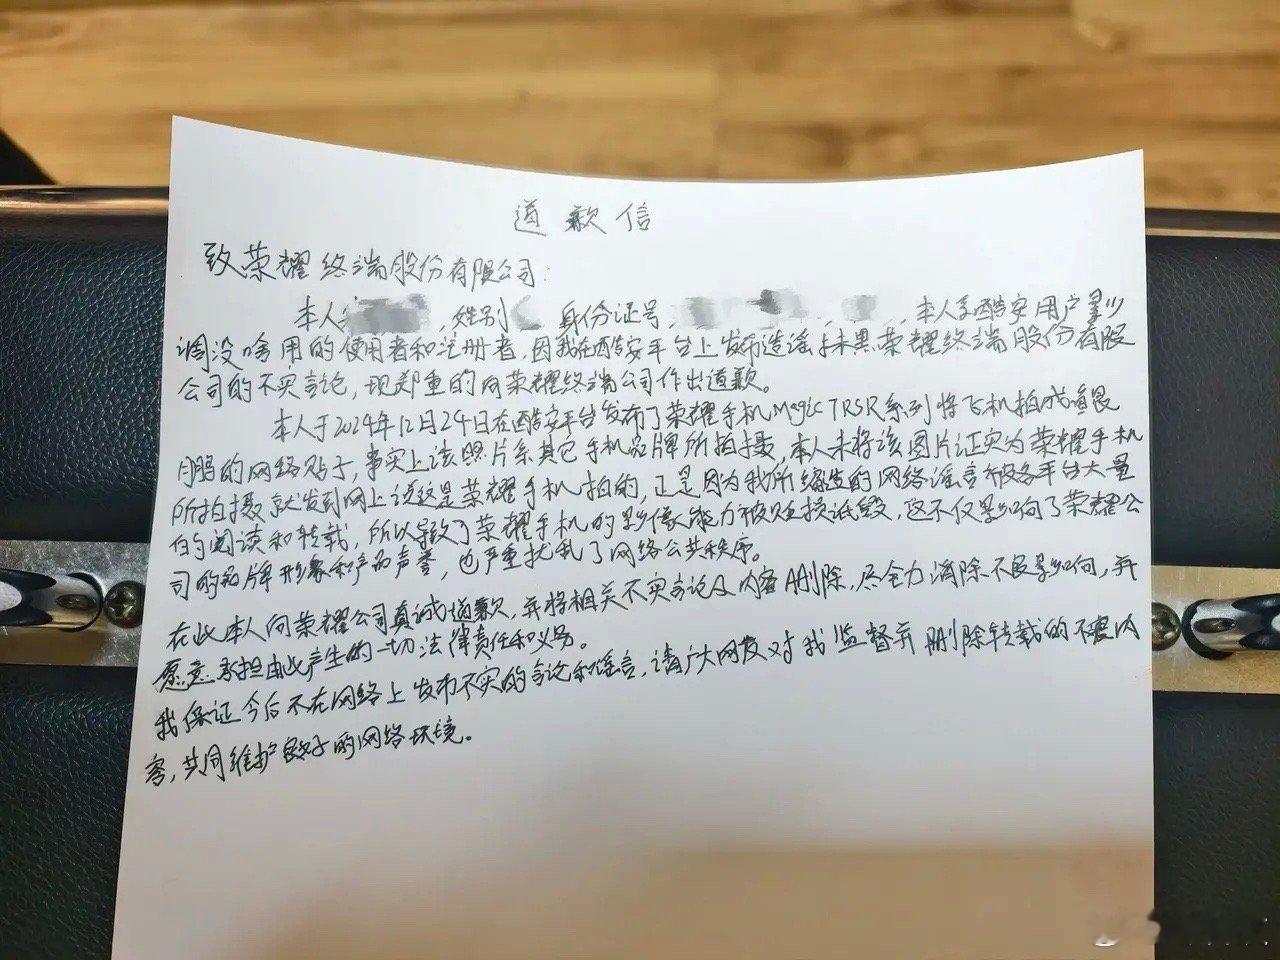 道歉信
致荣耀终端股份有限公司：
本人，姓别，身份证号，，本人系酷安用户量少
调没啥用的使用者和注册者，因我在酷安平台上发布造谣抹黑荣耀终端股份有限
公司的不实言论，现郑重的向荣耀终端公司作出道歉。
本人于2024年12月24日在酷安平台发布了荣耀手机Magic7RSR系列将飞机拍成鲲
鹏的网络贴子，事实上该照片系其它手机品牌所拍摄，本人未将该图片证实为荣耀手机
所拍摄就发到网上说这是荣耀手机拍的，正是因为我所编造的网络谣言被各平台大量
的阅读和转载，所以导致了荣耀手机的影像能力被贬损诋毁，这不仅影响了荣耀公
司的品牌形象和产品声誉，也严重扰乱了网络公共秩序。
在此本人向荣耀公司真诚道歉，并将相关不实言论及内容删除，尽全力消除不良影响，并
愿意承担由此产生的一切法律责任和义务。
我保证今后不在网络上发布不实的言论和谣言，请广大网友对我监督并删除转载的不实内
容，共同维护良好的网络环境。